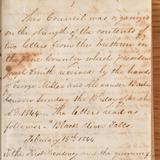 This Council was organized
on the strength of the contents of
two letters from the brethren in
the pine Country which president
Joseph Smith received by the hands
of George Miller and Alexander Bad
Sunday the 10th day of March
A.D. 1844. The letters read as
follows: Black River Falls.
February 15th 1844
To the First Presidency and the quorum